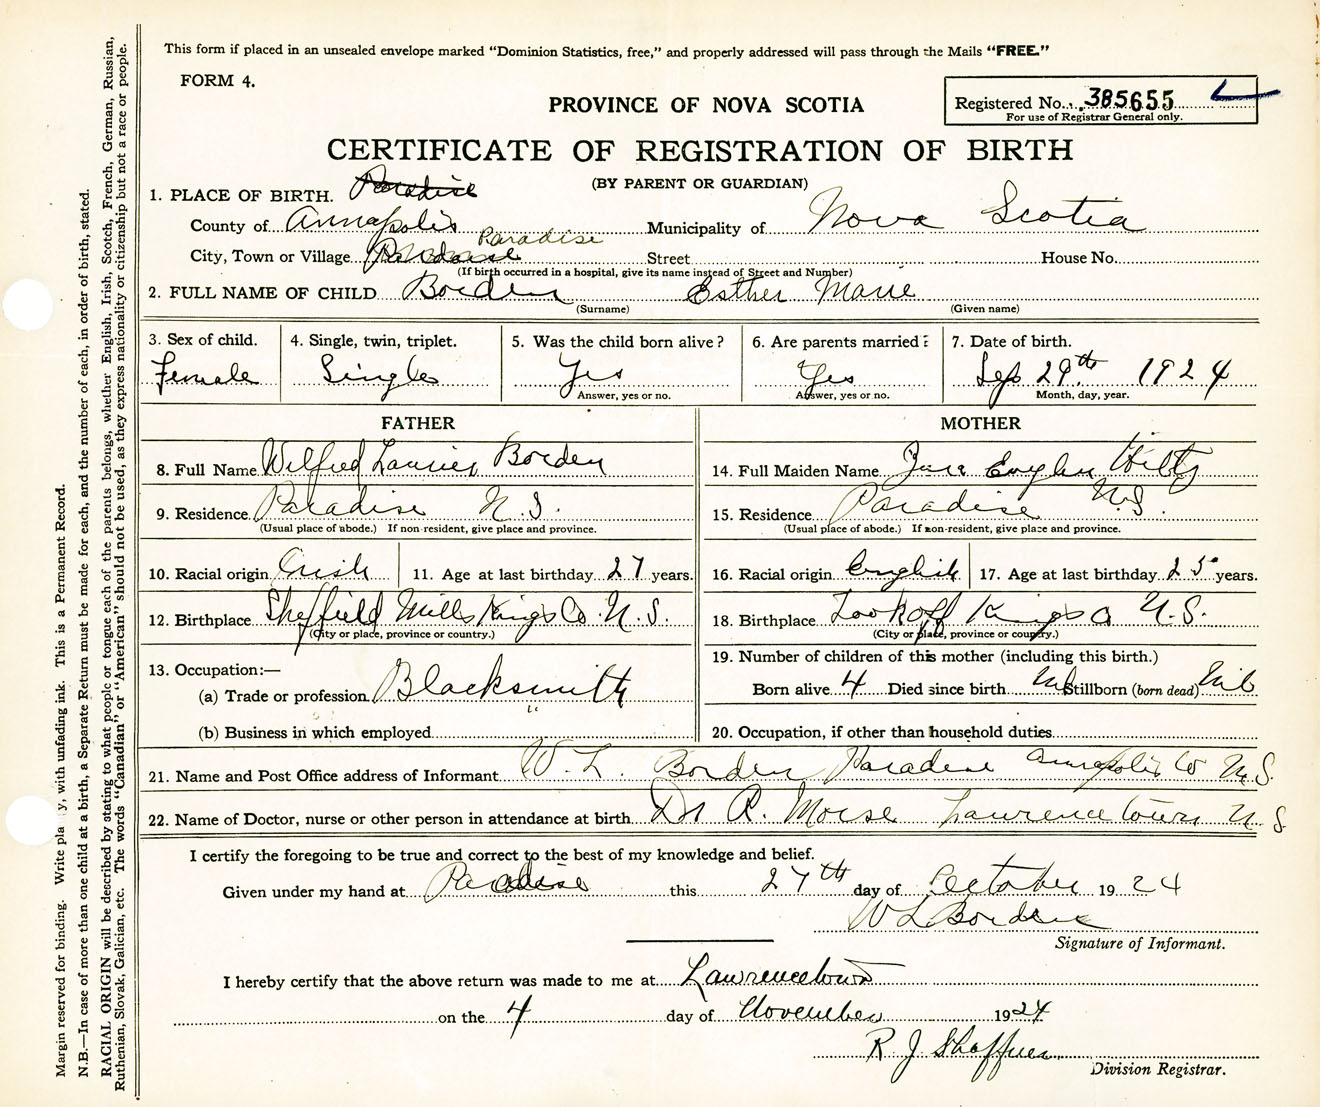 This form if placed in an unsealed envelope marked "Dominion Statistics, free," and properly addressed will pass through the Mails "FREE."
FORM 4.
Registered No. 385655
For use of Registrar General only.
PROVINCE OF NOVA SCOTIA
CERTIFICATE OF REGISTRATION OF BIRTH
(BY PARENT OR GUARDIAN)
1. PLACE OF BIRTH. Paradise
County of Annapolis Municipality of Nova Scotia
Paradise
City, Town or Village Paradise Street House No.
(If birth occurred in a hospital, give its name instead of Street and Number)
2. FULL NAME OF CHILD Borden Esther Marie
(Surname) (Given name)
3. Sex of child. 4. Single, twin, triplet. 5. Was the child born alive? 6. Are parents married? 7. Date of birth.
Female Single Yes Yes Sep 29th 1924
Answer, yes or no. Answer, yes or no. Month, day, year.
FATHER MOTHER
8. Full Name Wilfred Laurier Borden 14. Full Maiden Name Hiltz
9. Residence Paradise N.S. 15. Residence Paradise N.S.
(Usual place of abode.) If non-resident, give place and province. (Usual place of abode.) If non-resident, give place and province.
10. Racial origin Irish 11. Age at last birthday 27 years. 16. Racial origin English 17. Age at last birthday 25 years.
12. Birthplace Sheffield Mills Kings Co. N.S. 18. Birthplace Lookoff Kings Co N.S.
(City or place, province or country.) (City or place, province or country.)
13. Occupation:— 19. Number of children of this mother (including this birth.)
(a) Trade or profession Blacksmith Born alive 4 Died since birth Nil Stillborn (born dead) Nil
(b) Business in which employed 20. Occupation, if other than household duties
21. Name and Post Office address of Informant W. L. Borden Paradise Annapolis Co N.S.
22. Name of Doctor, nurse or other person in attendance at birth Dr R. Morse Lawrencetown N.S
I certify the foregoing to be true and correct to the best of my knowledge and belief.
Given under my hand at Paradise this 27th day of October 1924
W L Borden
Signature of Informant.
I hereby certify that the above return was made to me at Lawrencetown
on the 4 day of November 1924
R J Shaffner
Division Registrar.
Margin reserved for binding. Write plainly, with unfading ink. This is a Permanent Record.
N.B.—In case of more than one child at a birth, a Separate Return must be made for each, and the number of each, in order of birth, stated.
RACIAL ORIGIN will be described by stating to what people or tongue each of the parents belongs, whether English, Irish, Scotch, French, German, Russian,
Ruthenian, Slovak, Galician, etc. The words "Canadian" or "American" should not be used, as they express nationality or citizenship but not a race or people.